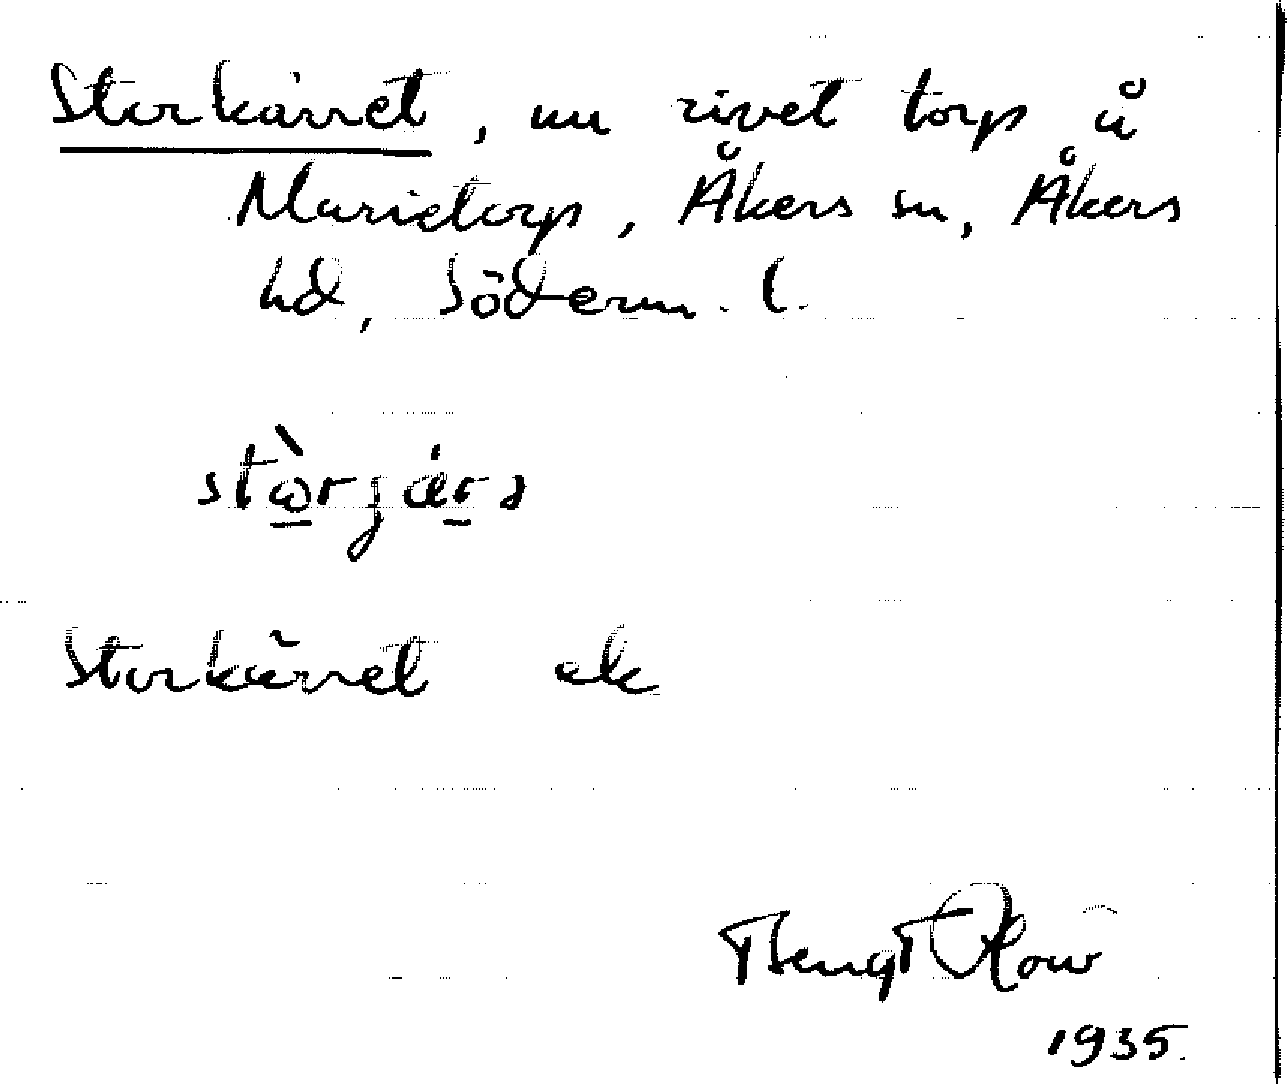 Storkärret, nu rivet torp å
Marietorp, Åkers sn, Åkers
hd, Söderm. l.
Storkärret ek
Bengt
1935.